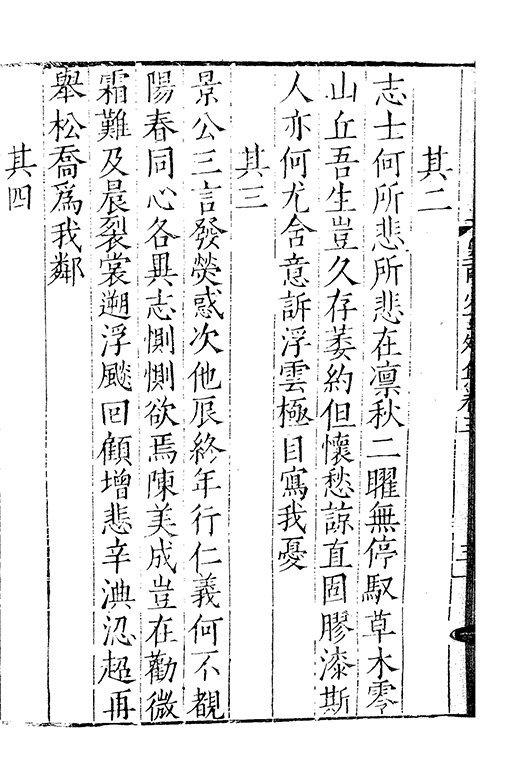 其二
志士何所悲所悲在凛秋二曜無停馭草木零
山丘吾生豈久存萎約但懷愁諒直固膠漆斯
人亦何尤含意訴浮雲極目寫我憂
其三
景公三言發熒惑次他辰終年行仁義何不覩
陽春同心各異志惻惻欲焉陳美成豈在勸微
霜難及晨裂裳遡浮飈回顧增悲辛淟涊超再
舉松喬爲我鄰
其四